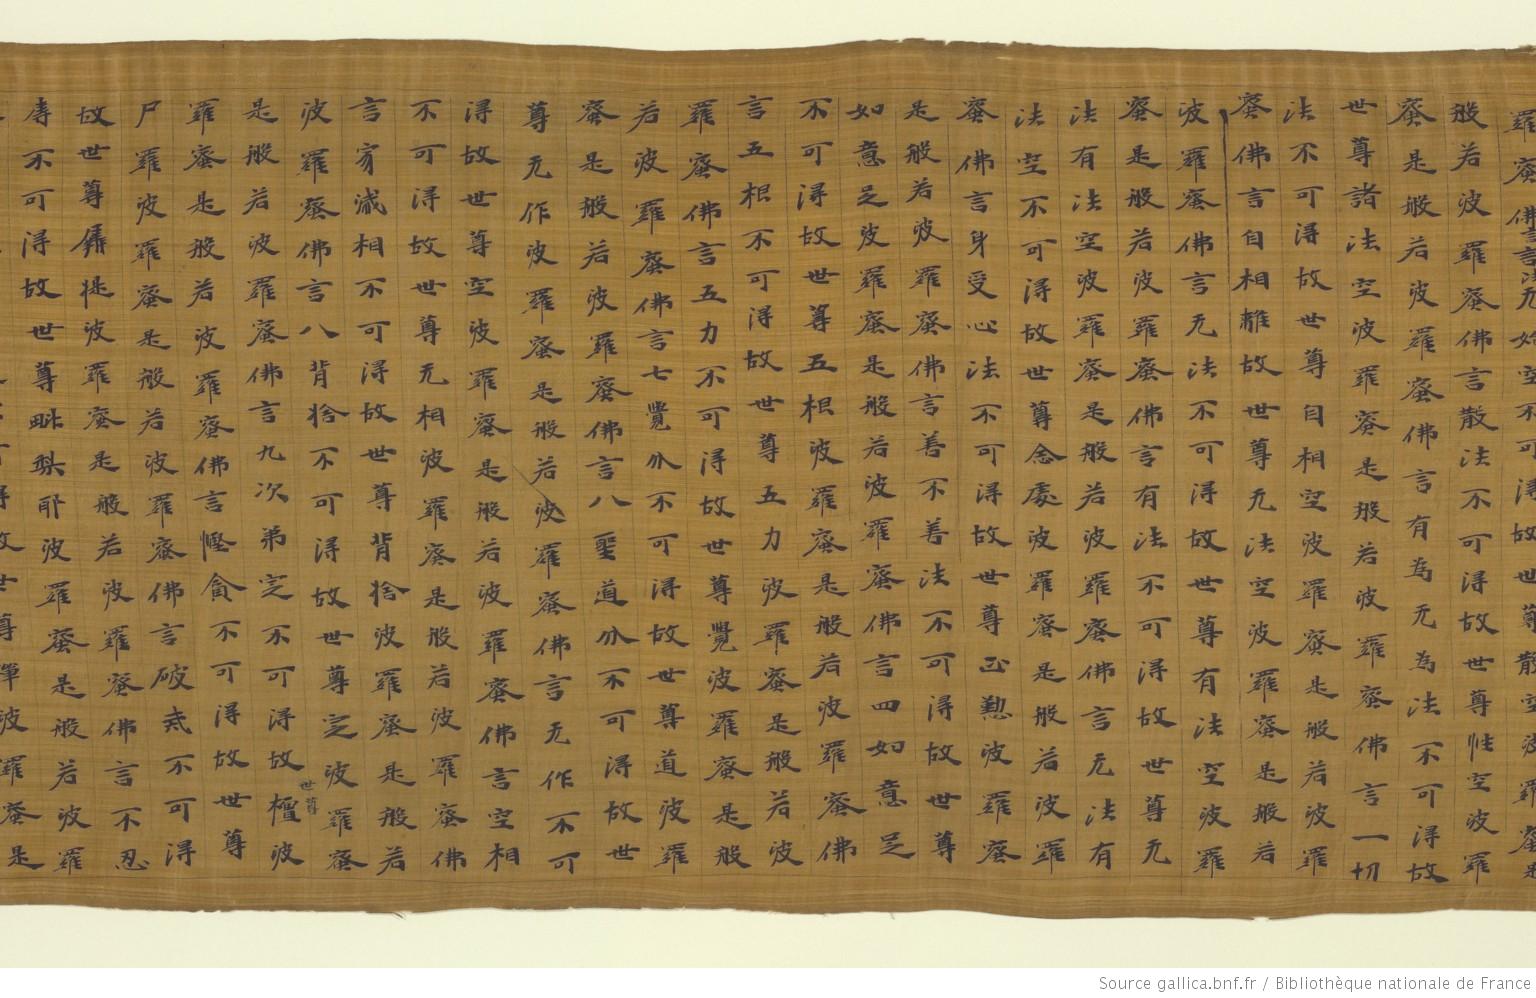 羅蜜佛言法无始空不可得故世尊散空波羅蜜是
般若波羅蜜佛言散法不可得故世尊性空波羅
蜜是般若波羅蜜佛言有為无為法不可得故
世尊諸法空波羅蜜是般若波羅蜜佛言一切
法不可得故世尊自相空波羅蜜是般若波羅
蜜佛言自相離故世尊无法空波羅蜜是般若
波羅蜜佛言无法不可得故世尊有法空波羅
蜜是般若波羅蜜佛言有法不可得故世尊无
法有法空波羅蜜是般若波羅蜜佛言无法有
法空不可得故世尊念處波羅蜜是般若波羅
蜜佛言身受心法不可得故世尊正懃波羅蜜
是般若波羅蜜佛言善不善法不可得故世尊
如意足波羅蜜是般若波羅蜜佛言四如意足
不可得故世尊五根波羅蜜是般若波羅蜜佛
言五根不可得故世尊五力波羅蜜是般若波
羅蜜佛言五力不可得故世尊覺波羅蜜是般
若波羅蜜佛言七覺分不可得故世尊道波羅
蜜是般若波羅蜜佛言八聖道分不可得故世
尊无作波羅蜜是般若波羅蜜佛言无作不可
得故世尊空波羅蜜是般若波羅蜜佛言空相
不可得故世尊无相波羅蜜是般若波羅蜜佛
言寂滅相不可得故世尊背捨波羅蜜是般若
波羅蜜佛言八背捨不可得故世尊定波羅蜜
是般若波羅蜜佛言九次弟定不可得故世尊檀波
羅蜜是般若波羅蜜佛言慳貪不可得故世尊
尸羅波羅蜜是般若波羅蜜佛言破戒不可得
故世尊羼提波羅蜜是般若波羅蜜佛言不忍
辱不可得故世尊毗梨耶波羅蜜是般若波羅
得故世尊禪波羅蜜是
Source gallica.bnf.fr / Bibliothèque nationale de France